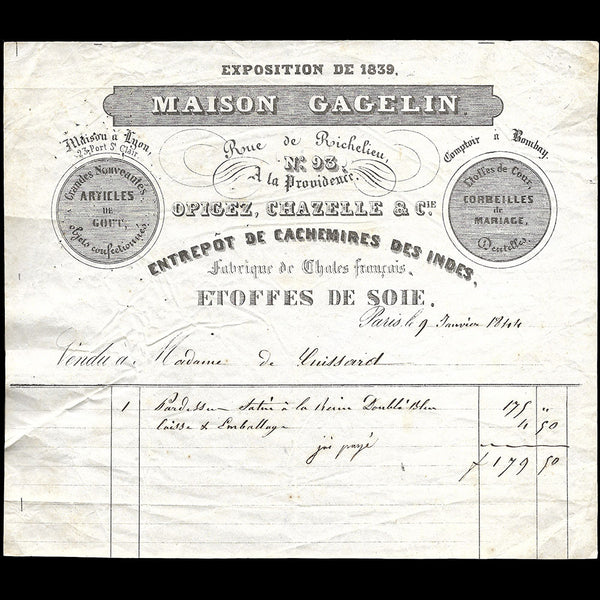 EXPOSITION DE 1839.
MAISON GAGELIN.
Maison à Lyon,
23, Port St. Clair.
Grandes Nouveautés.
ARTICLES
DE
GOUT,
objets confectionnés
Rue de Richelieu,
No. 93.
A la Providence.
OPIGEZ, CHAZELLE & CIE
Comptoir à Bombay.
Etoffes de Cour,
CORBEILLES
de
MARIAGE,
Dentelles.
ENTREPÔT DE CACHEMIRES DES INDES,
Fabrique de Chales français.
ETOFFES DE SOIE.
Paris, le 9 Janvier 1844
Vendu à Madame de Cuissard
1 Pardessus satin à la Reine Doublé Bleu 175 "
Caisse & Emballage 4 50
j'ai payé
f 179 50